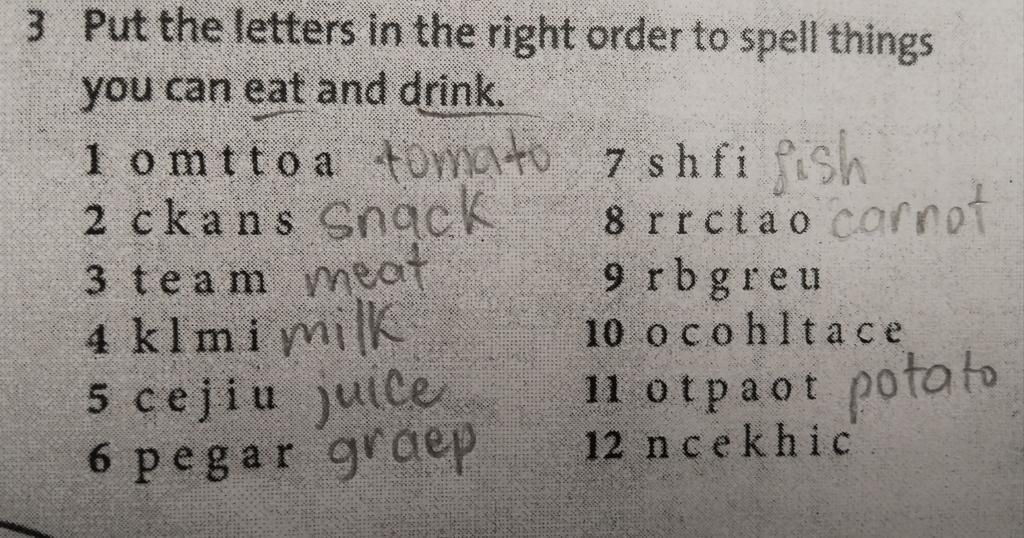 3 Put the letters in the right order to spell things
you can eat and drink.
1 o m t t o a tomato
2 c k a n s snack
3 t e a m meat
4 k l m i milk
5 c e j i u juice
6 p e g a r graep
7 s h f i fish
8 r r c t a o carrot
9 r b g r e u
10 o c o h l t a c e
11 o t p a o t potato
12 n c e k h i c